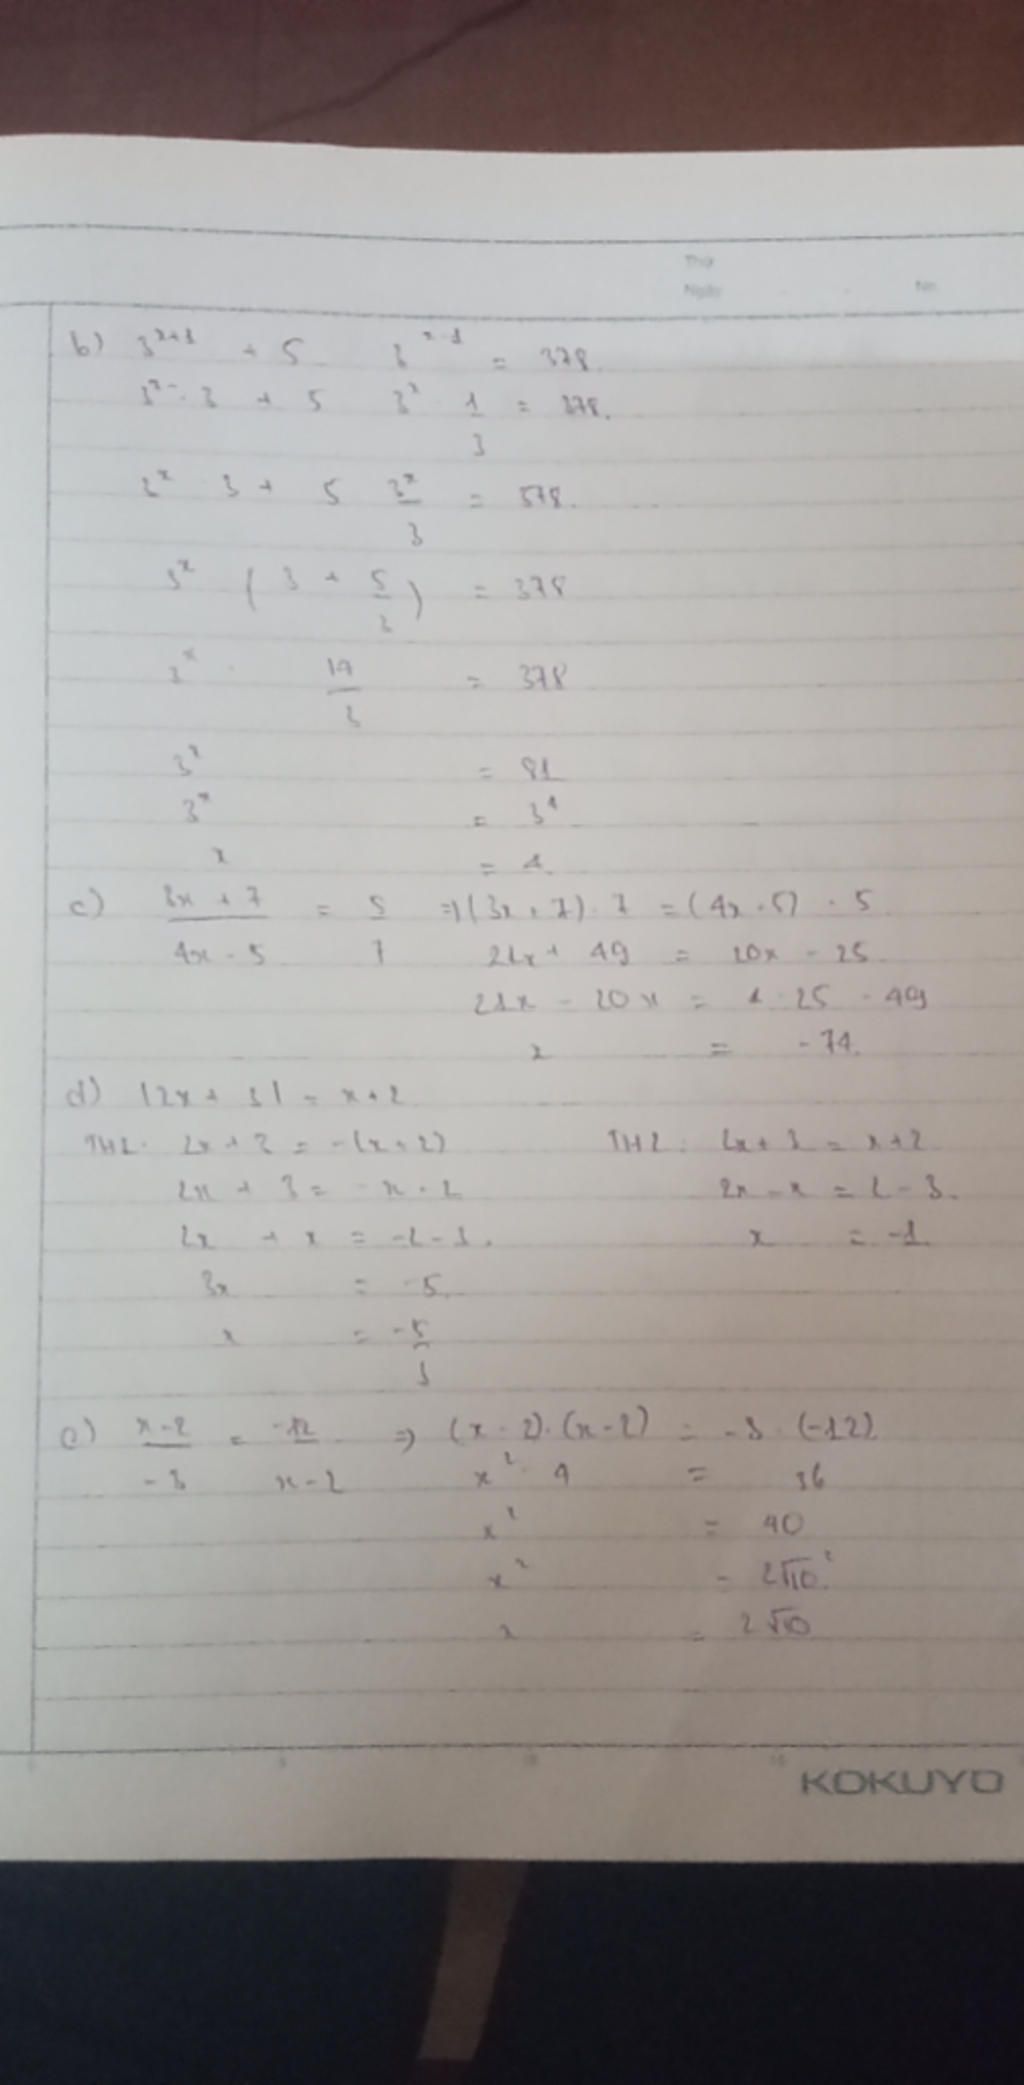 Thứ
Ngày No.
b) 3^{x+1} + 5 . 3^{x-1} = 378.
3^x . 3 + 5 3^x . 1/3 = 378.
3^x . 3 + 5 3^x/3 = 378.
3^x ( 3 + 5/3 ) = 378
3^x . 14/3 = 378
3^x = 81
3^x = 3^4
x = 4.
c) (3x + 7)/(4x - 5) = 5/7 ⇒ (3x + 7) . 7 = (4x - 5) . 5
21x + 49 = 20x - 25.
21x - 20x = -25 - 49
x = -74.
d) |2x + 3| = x + 2
TH1: 2x + 3 = -(x + 2) TH2: 2x + 3 = x + 2
2x + 3 = -x - 2 2x - x = 2 - 3.
2x + x = -2 - 3. x = -1.
3x = -5.
x = -5/3
e) (x - 2)/-3 = -12/(x - 2) ⇒ (x - 2) . (x - 2) = -3 . (-12)
x^2 - 4 = 36
x^2 = 40
x^2 = 2√10^2.
x = 2√10
KOKUYO